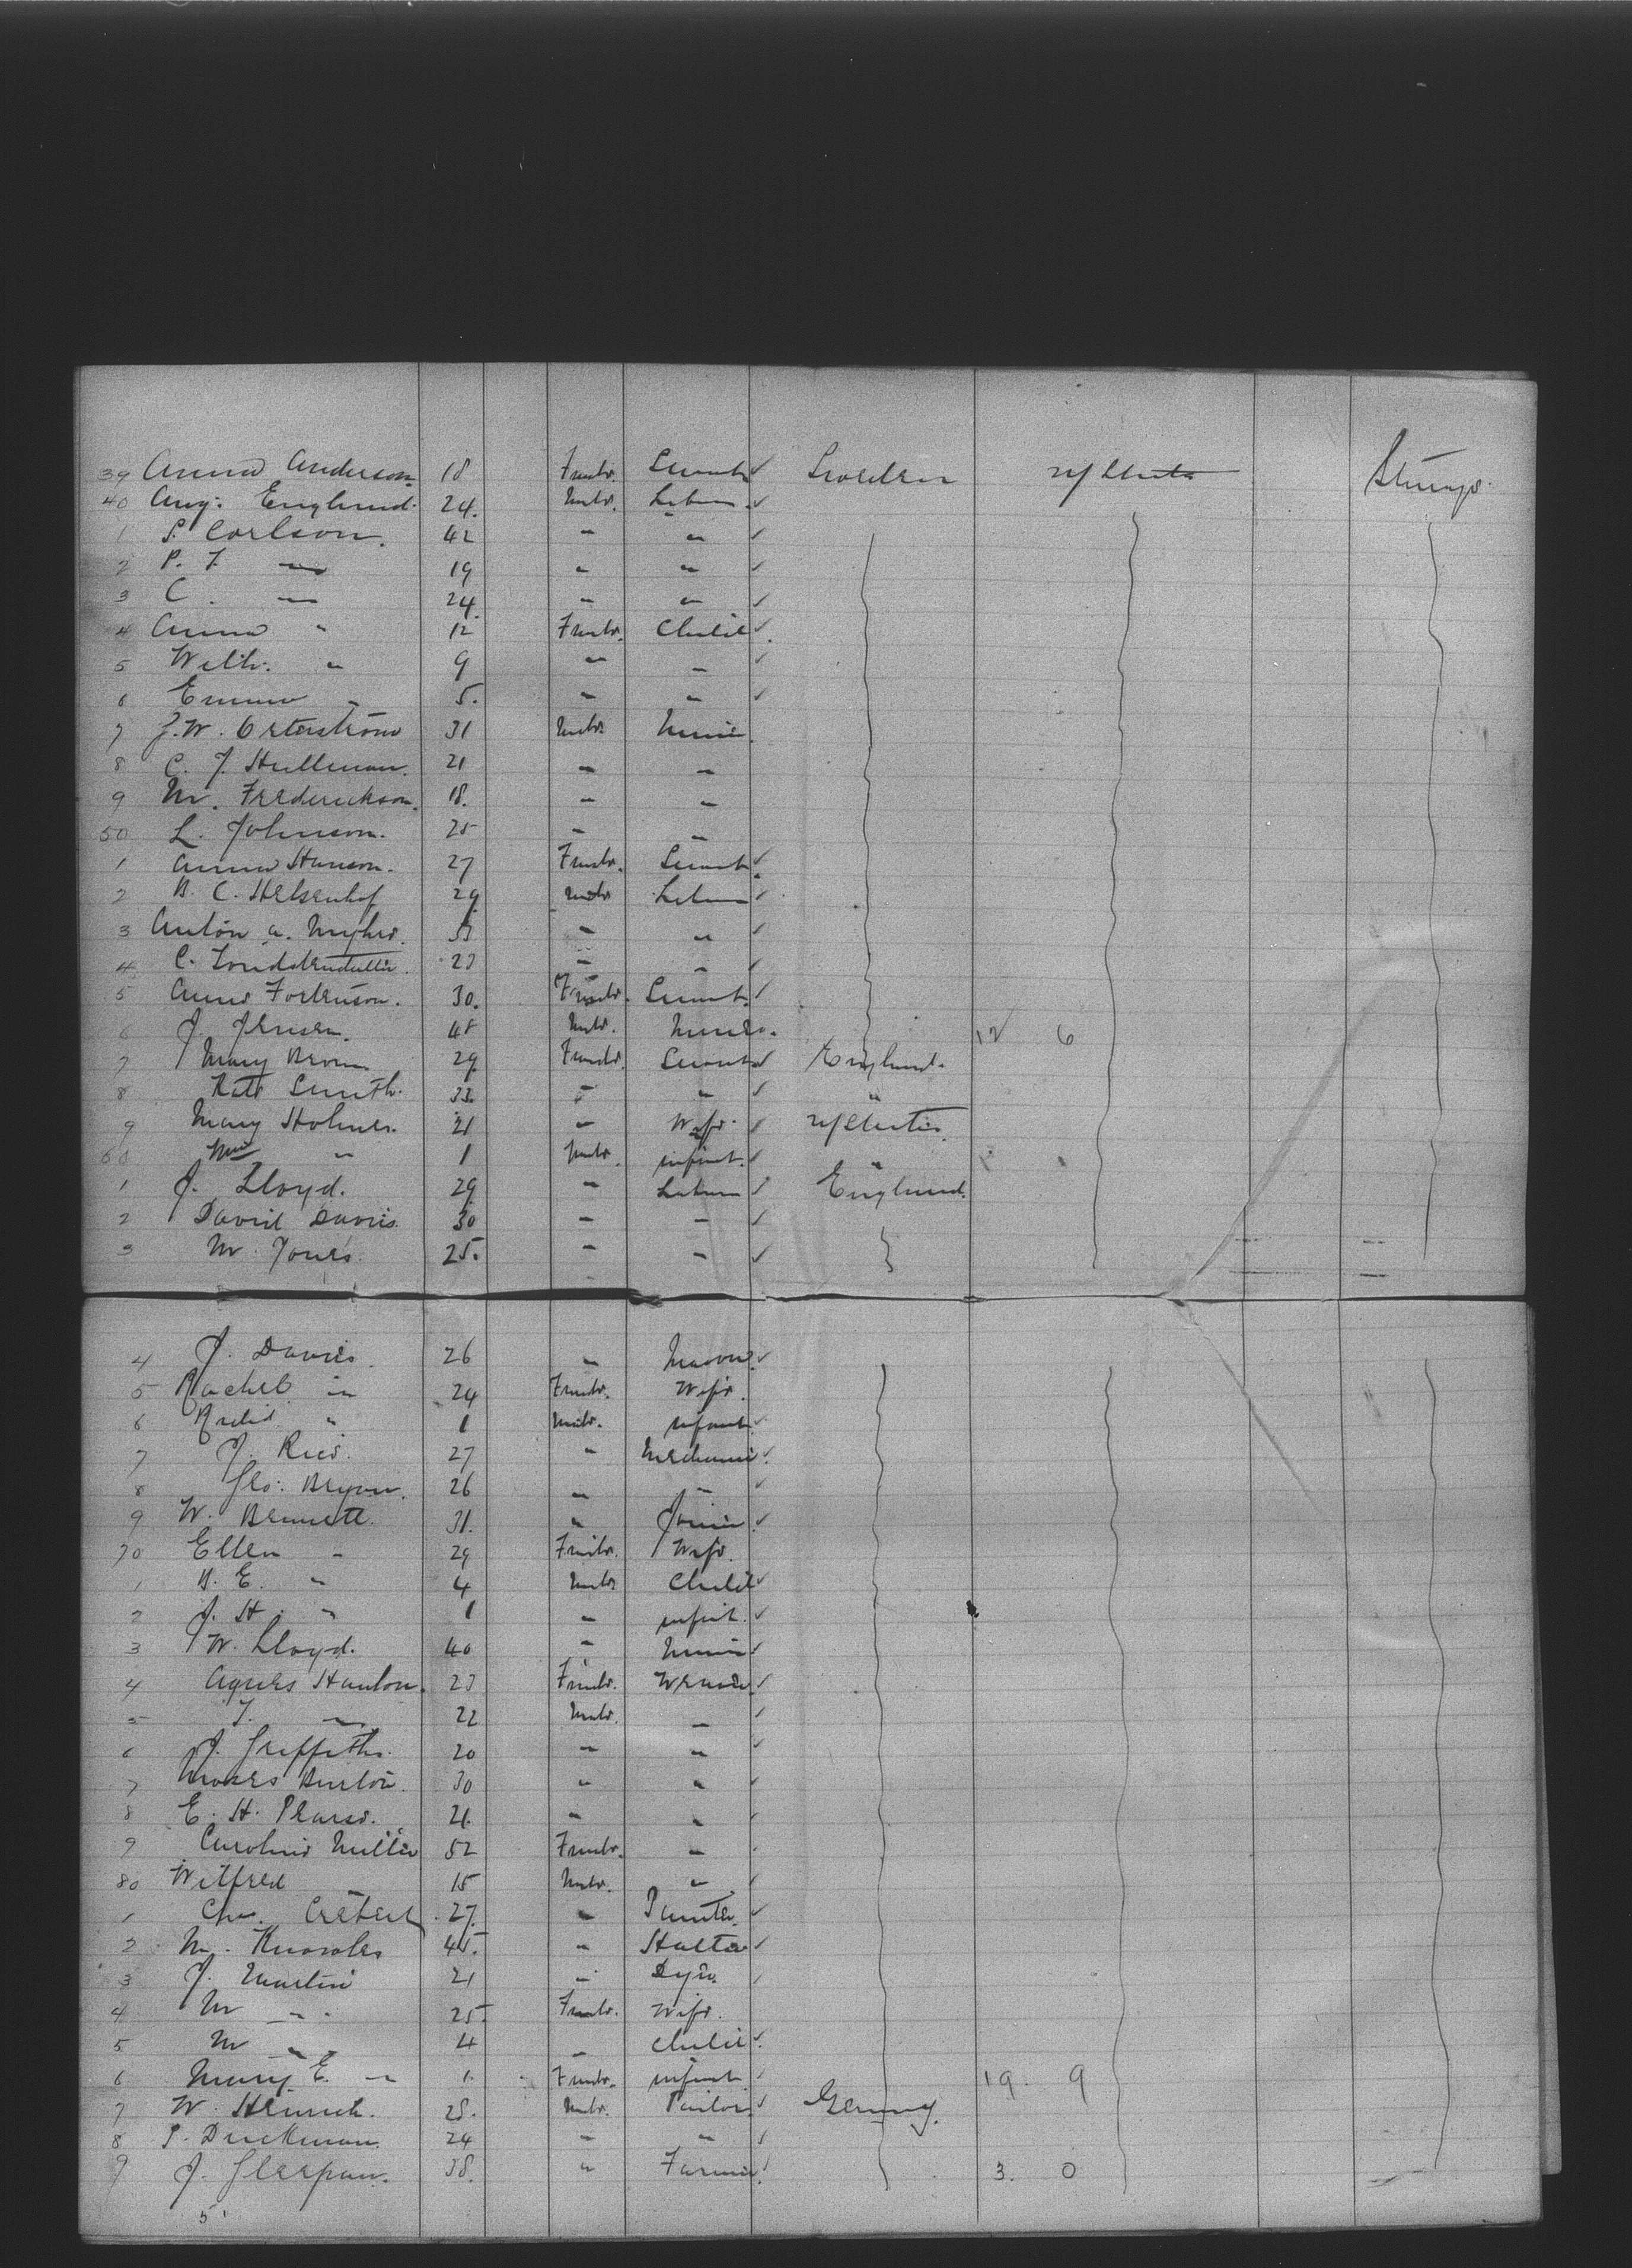 39 Anna Anderson 18 Female Servant Sweden U States Steerage
40 Aug. Englund 24. Male Labour
1 P. Carlson 42 " "
2 P. F. " 19 " "
3 C. " 24 " "
4 Anna " 12 Female Child
5 Wilh. " 9 " "
6 Emma " 5. " "
7 J. W. 31 Male Miner
8 C. J. Hullman 21 " "
9 M. Frederickson 18. " "
50 L. Johnson. 25 " "
1 Anna Hanson. 27 Female Servant
2 29 Male Labour
3 Anton " "
4 C. " "
5 30. Female Servant
6 J. Jensen 48 Male Miner 12 6
7 Mary Brown 29 Female Servant England.
8 Kate Smith. 33. " " "
9 Mary Holmes. 21 " Wife U States
60 " 1 Male infant. "
1 J. Lloyd. 29 " Labour England.
2 David Davis 30 " "
3 W. Jones. 25. " "
4 J. Davies 26 " Mason
5 Rachel " 24 Female Wife.
6 " 1 Male. infant
7 J. Rees. 27 " Mechanic
8 Geo. Bryan. 26 " "
9 W. Bennett. 31. " Joiner
70 Ellen " 29 Female. Wife.
1 " 4 Male Child
2 J. H. " 1 " infant.
3 W. Lloyd. 40 " Miner
4 Agnes Hanlon. 23 Female Weaver
5 " 22 Male. "
6 J. Griffiths. 20 " "
7 Moses Burton. 30 " "
8 E. H. Pearse. 21. " "
9 Caroline Miller 52 Female. "
80 Wilfred " 15 Male. "
1 Chas. 27. " Painter
2 M. Knowles 45. " Hatter
3 J. Martin 21 " Dyer
4 M " 25. Female. Wife.
5 M " 4 " Child
6 Mary E. " 1. Female. infant 19. 9
7 W. 28. Male. Tailor Germany.
8 24 " "
9 J. 38. " Farmer 3. 0
5